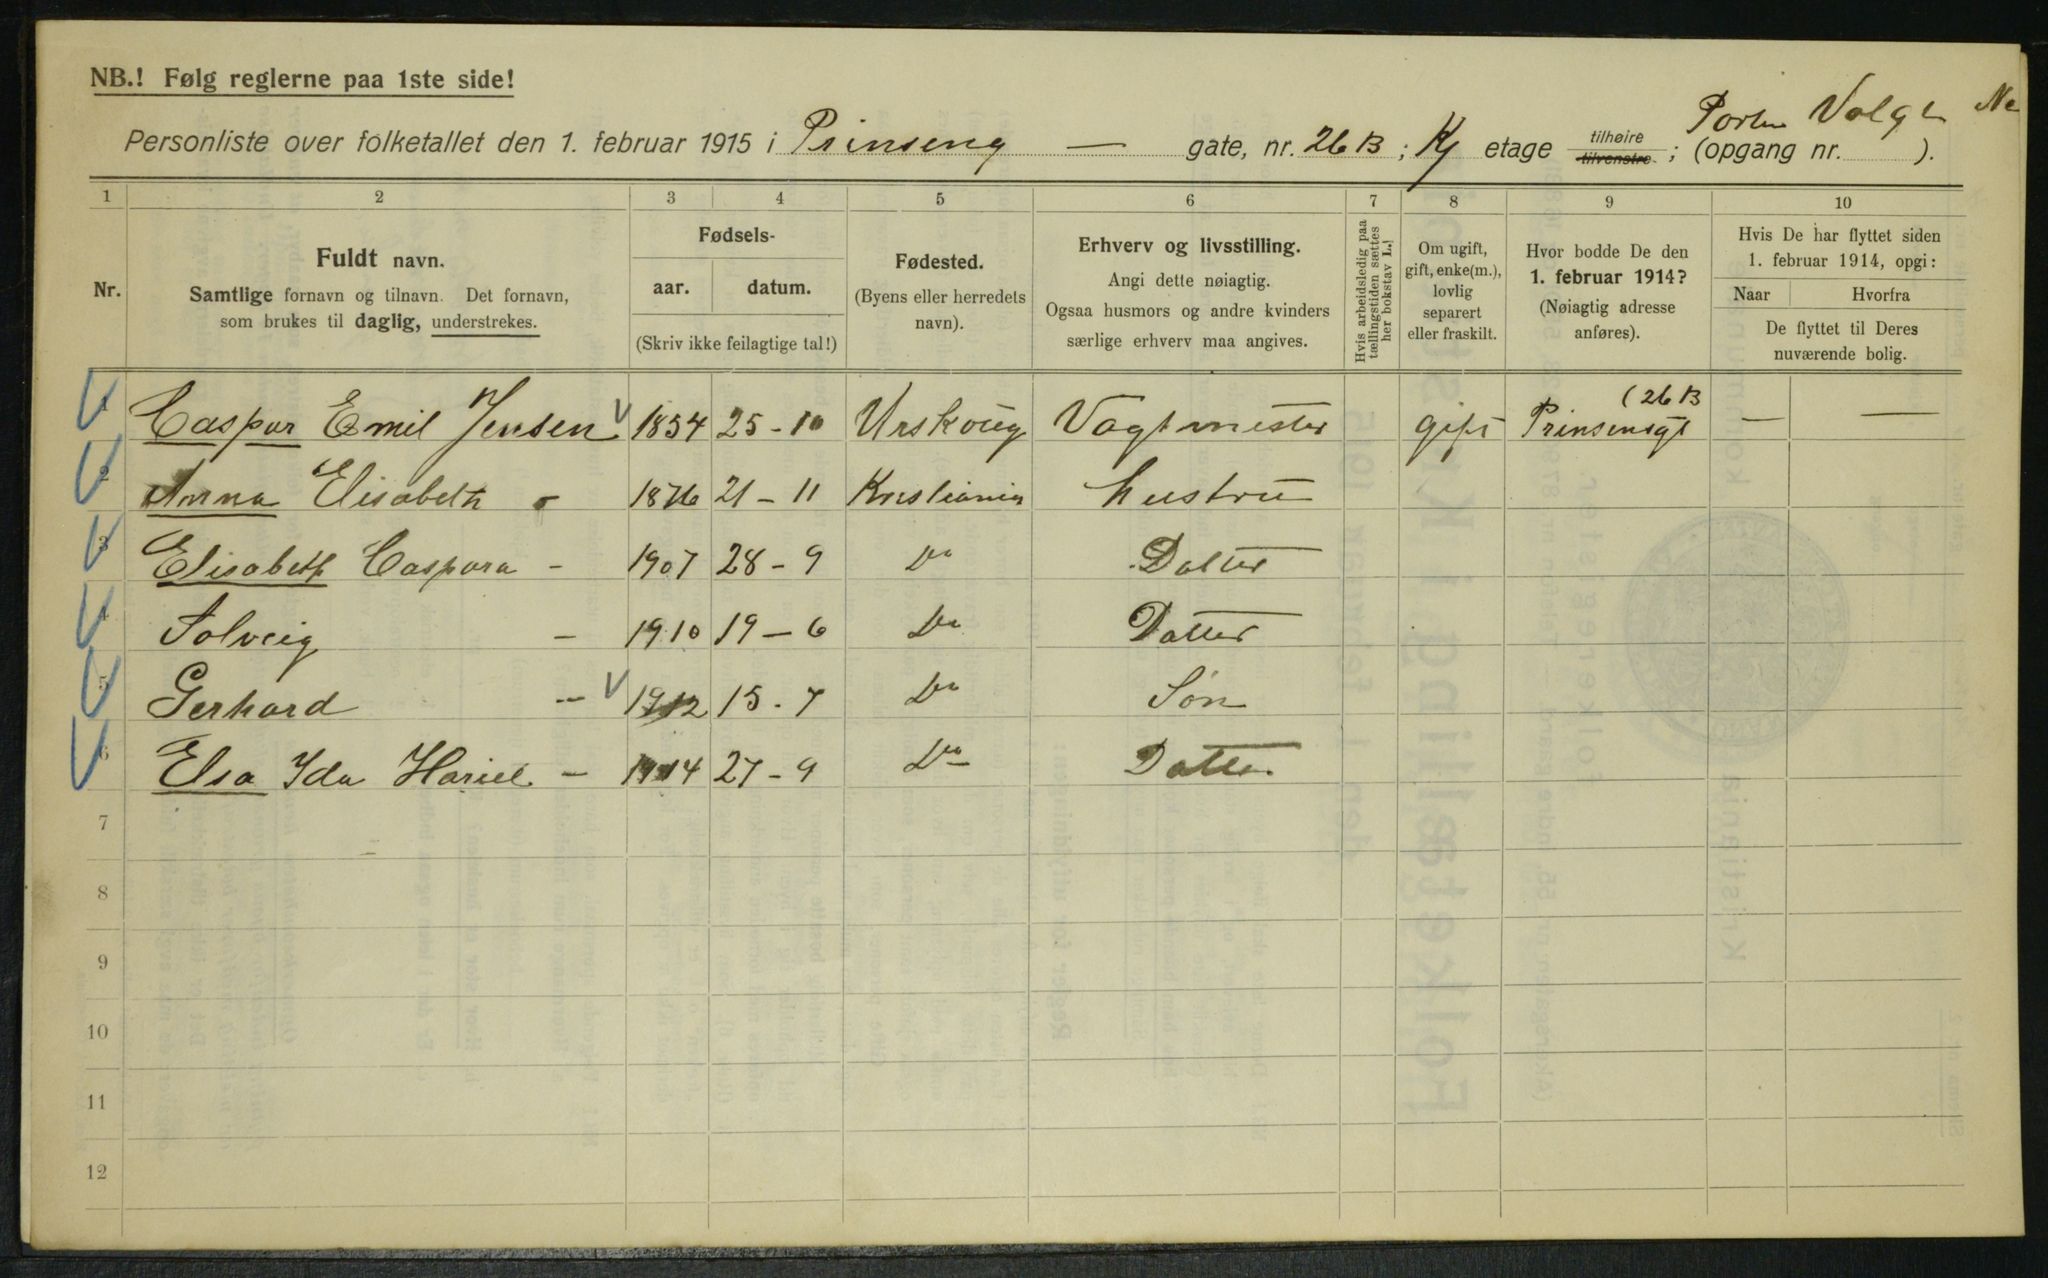 NB.! Følg reglerne paa 1ste side!
Porten Volgt
Personliste over folketallet den 1. februar 1915 i Prinseng — gate, nr. 26 B ; Kj etage tilhøire tilvenstre ; (opgang nr. ).
1 2 3 4 5 6 7 8 9 10
Nr.
Fuldt navn.
Samtlige fornavn og tilnavn. Det fornavn,
som brukes til daglig, understrekes.
Fødsels-
aar. datum.
(Skriv ikke feilagtige tal!)
Fødested.
(Byens eller herredets
navn).
Erhverv og livsstilling.
Angi dette nøiagtig.
Ogsaa husmors og andre kvinders
særlige erhverv maa angives.
Hvis arbeidsledig paa
tællingstiden sættes
her bokstav L.!
Om ugift,
gift, enke(m.),
lovlig
separert
eller fraskilt.
Hvor bodde De den
1. februar 1914?
(Nøiagtig adresse
anføres).
Hvis De har flyttet siden
1. februar 1914, opgi:
Naar Hvorfra
De flyttet til Deres
nuværende bolig.
1 Caspar Emil Jensen 1854 25-10 Urskoug Vagtmester gift Prinsensgt (26 B — —
2 Anna Elisabeth - 1876 21-11 Kristiania hustru
3 Elisabeth Caspara - 1907 28-9 Do Datter
4 Solveig - 1910 19-6 Do Datter
5 Gerhard - 1912 15-7 Do Søn
6 Elsa Ida Hariet - 1914 27-9 Do Datter
7
8
9
10
11
12